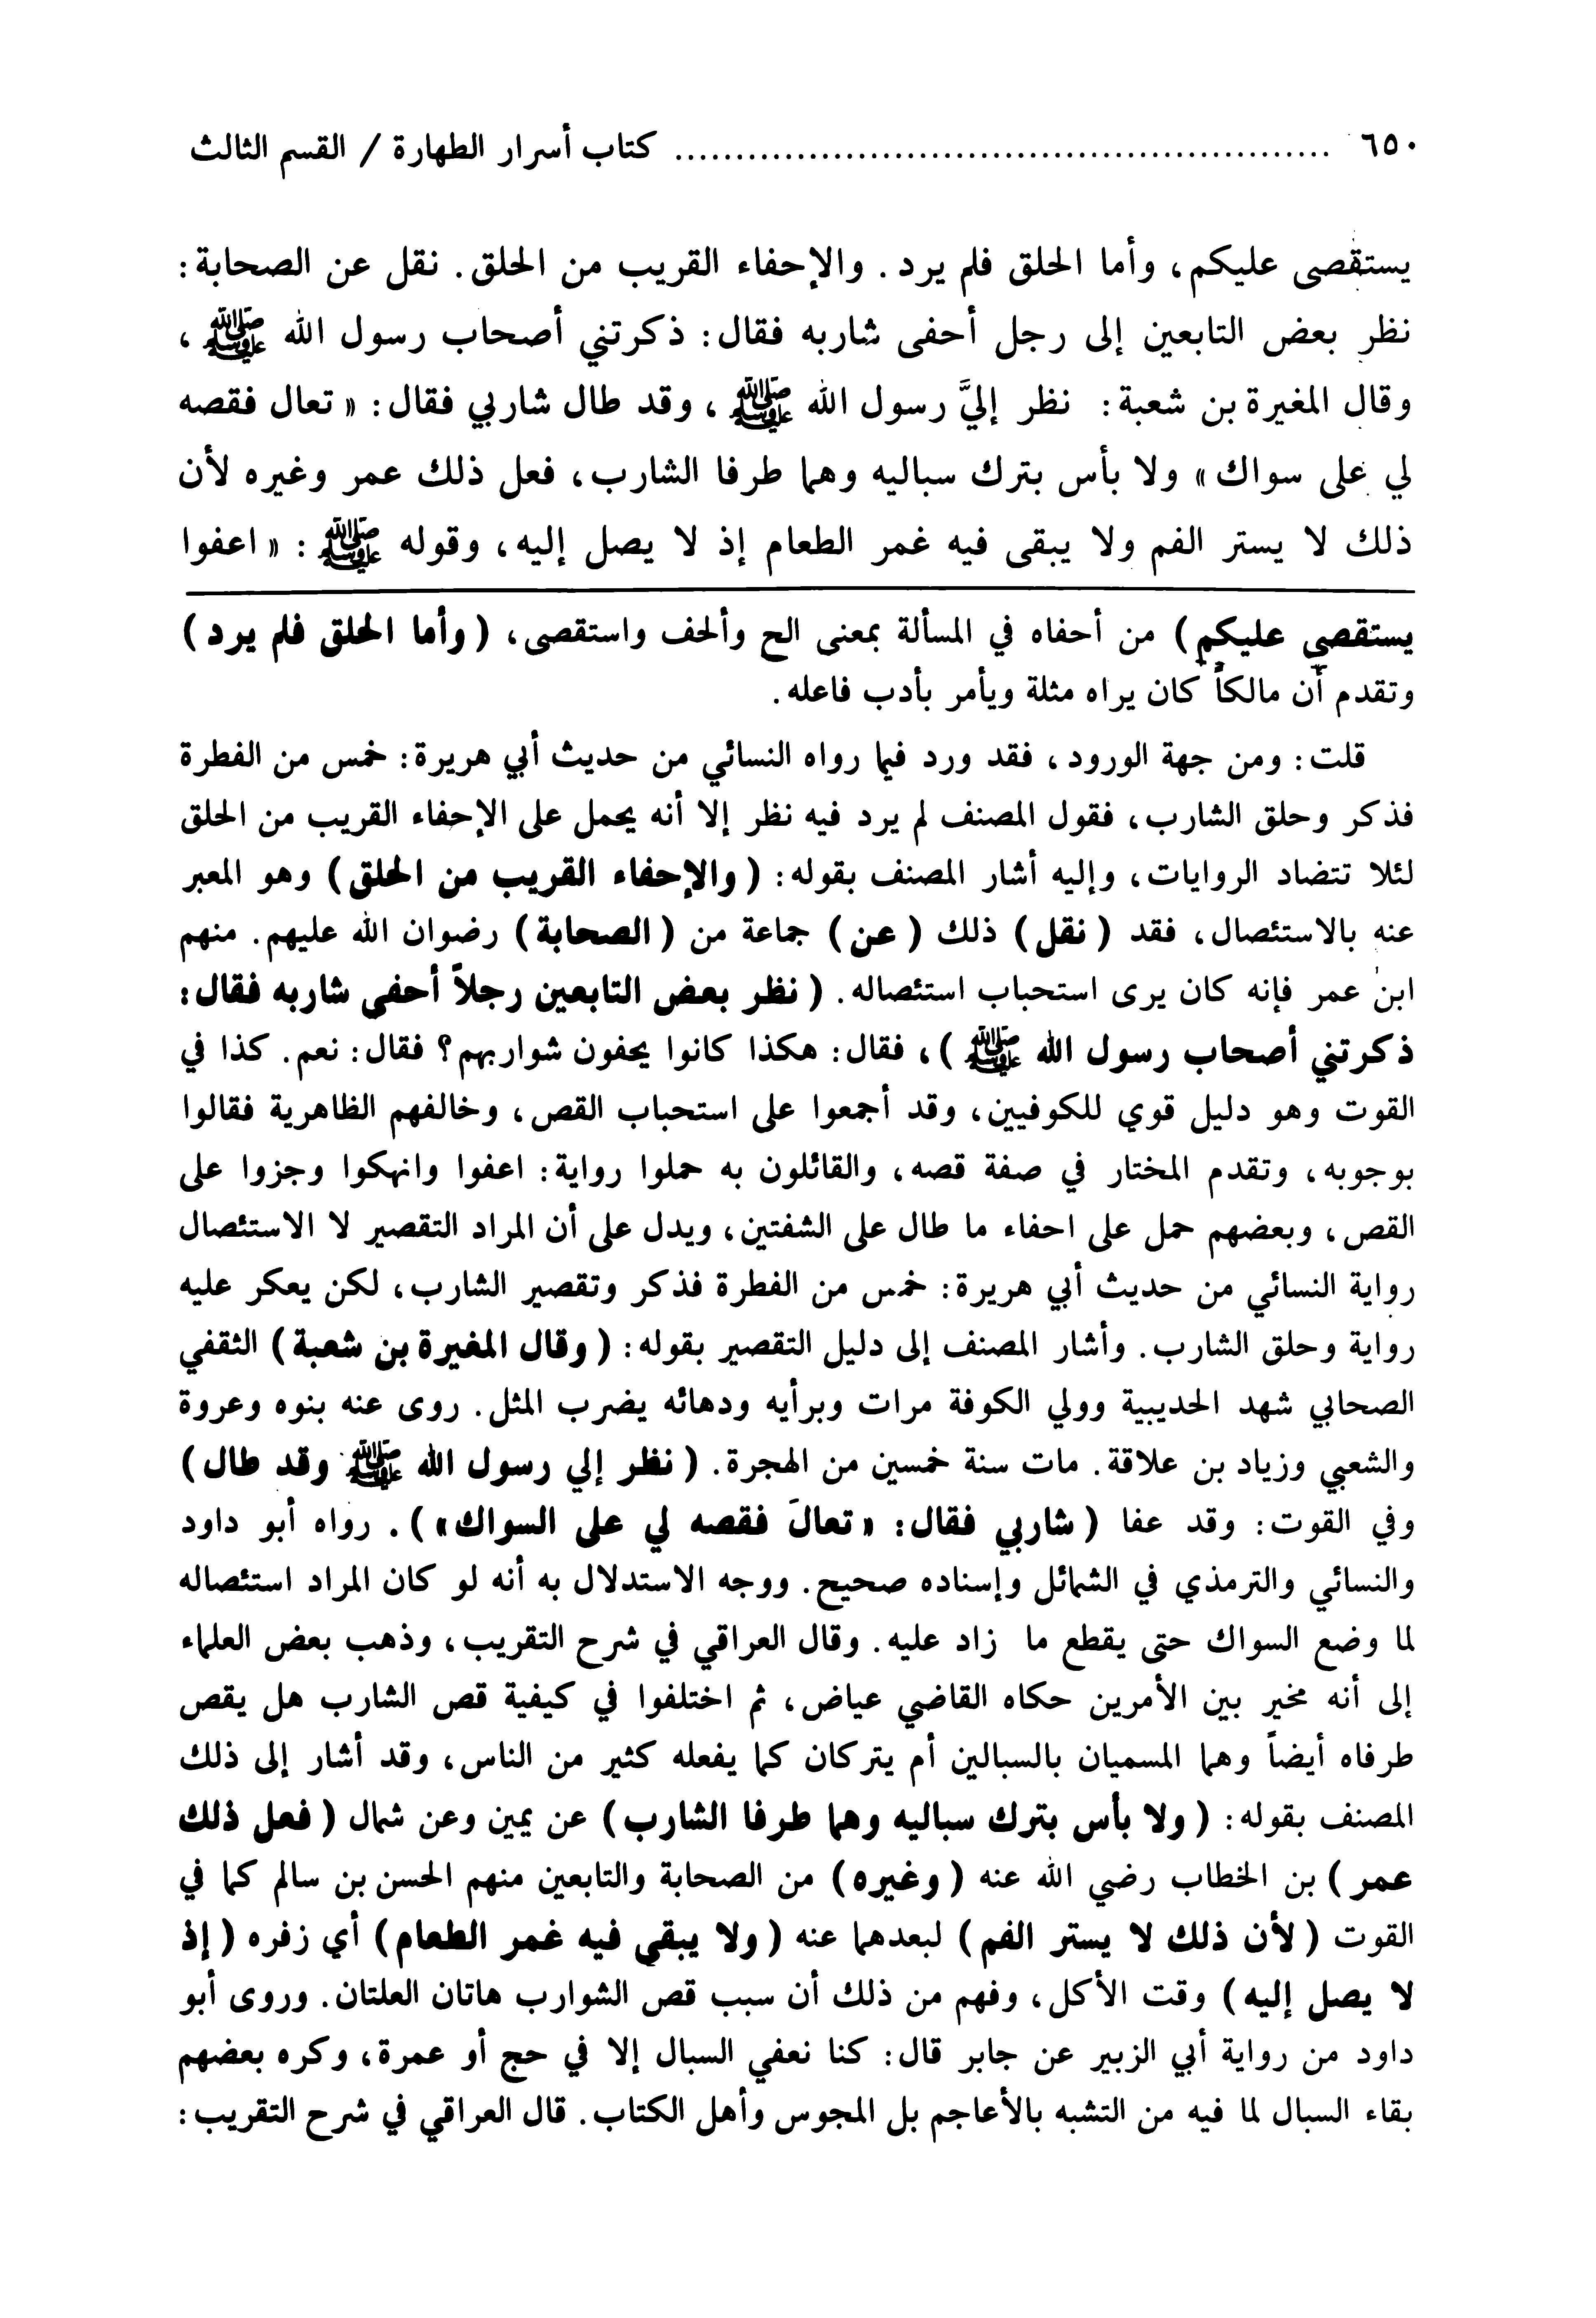 ٦٥٠ ........................................................ كتاب أسرار الطهارة / القسم الثالث
يستقصى عليكم، وأما الحلق فلم يرد. والإحفاء القريب من الحلق. نقل عن الصحابة:
نظر بعض التابعين إلى رجل أحفى شاربه فقال: ذكرتني أصحاب رسول الله ﷺ،
وقال المغيرة بن شعبة: نظر إليَّ رسول الله ﷺ، وقد طال شاربي فقال: «تعال فقصه
لي على سواك» ولا بأس بترك سباليه وهما طرفا الشارب، فعل ذلك عمر وغيره لأن
ذلك لا يستر الفم ولا يبقى فيه غمر الطعام إذ لا يصل إليه، وقوله ﷺ: «اعفوا
يستقصي عليكم) من أحفاه في المسألة بمعنى الح وألحف واستقصى، (وأما الحلق فلم يرد)
وتقدم أن مالكاً كان يراه مثلة ويأمر بأدب فاعله.
قلت: ومن جهة الورود، فقد ورد فيما رواه النسائي من حديث أبي هريرة: خمس من الفطرة
فذكر وحلق الشارب، فقول المصنف لم يرد فيه نظر إلا أنه يحمل على الإحفاء القريب من الحلق
لئلا تتضاد الروايات، وإليه أشار المصنف بقوله: (والإحفاء القريب من الحلق) وهو المعبر
عنه بالاستئصال، فقد (نقل) ذلك (عن) جماعة من (الصحابة) رضوان الله عليهم. منهم
ابن عمر فإنه كان يرى استحباب استئصاله. (نظر بعض التابعين رجلاً أحفى شاربه فقال:
ذكرتني أصحاب رسول الله ﷺ)، فقال: هكذا كانوا يحفون شواربهم؟ فقال: نعم. كذا في
القوت وهو دليل قوي للكوفيين، وقد أجمعوا على استحباب القص، وخالفهم الظاهرية فقالوا
بوجوبه، وتقدم المختار في صفة قصه، والقائلون به حملوا رواية: اعفوا وانهكوا وجزوا على
القص، وبعضهم حمل على احفاء ما طال على الشفتين، ويدل على أن المراد التقصير لا الاستئصال
رواية النسائي من حديث أبي هريرة: خمس من الفطرة فذكر وتقصير الشارب، لكن يعكر عليه
رواية وحلق الشارب. وأشار المصنف إلى دليل التقصير بقوله: (وقال المغيرة بن شعبة) الثقفي
الصحابي شهد الحديبية وولي الكوفة مرات وبرأيه ودهائه يضرب المثل. روى عنه بنوه وعروة
والشعبي وزياد بن علاقة. مات سنة خمسين من الهجرة. (نظر إلي رسول الله ﷺ وقد طال)
وفي القوت: وقد عفا (شاربي فقال: «تعالَ فقصه لي على السواك»). رواه أبو داود
والنسائي والترمذي في الشمائل وإسناده صحيح. ووجه الاستدلال به أنه لو كان المراد استئصاله
لما وضع السواك حتى يقطع ما زاد عليه. وقال العراقي في شرح التقريب، وذهب بعض العلماء
إلى أنه مخير بين الأمرين حكاه القاضي عياض، ثم اختلفوا في كيفية قص الشارب هل يقص
طرفاه أيضاً وهما المسميان بالسبالين أم يتركان كما يفعله كثير من الناس، وقد أشار إلى ذلك
المصنف بقوله: (ولا بأس بترك سباليه وهما طرفا الشارب) عن يمين وعن شمال (فعل ذلك
عمر) بن الخطاب رضي الله عنه (وغيره) من الصحابة والتابعين منهم الحسن بن سالم كما في
القوت (لأن ذلك لا يستر الفم) لبعدهما عنه (ولا يبقى فيه غمر الطعام) أي زفره (إذ
لا يصل إليه) وقت الأكل، وفهم من ذلك أن سبب قص الشوارب هاتان العلتان. وروى أبو
داود من رواية أبي الزبير عن جابر قال: كنا نعفي السبال إلا في حج أو عمرة، وكره بعضهم
بقاء السبال لما فيه من التشبه بالأعاجم بل المجوس وأهل الكتاب. قال العراقي في شرح التقريب: